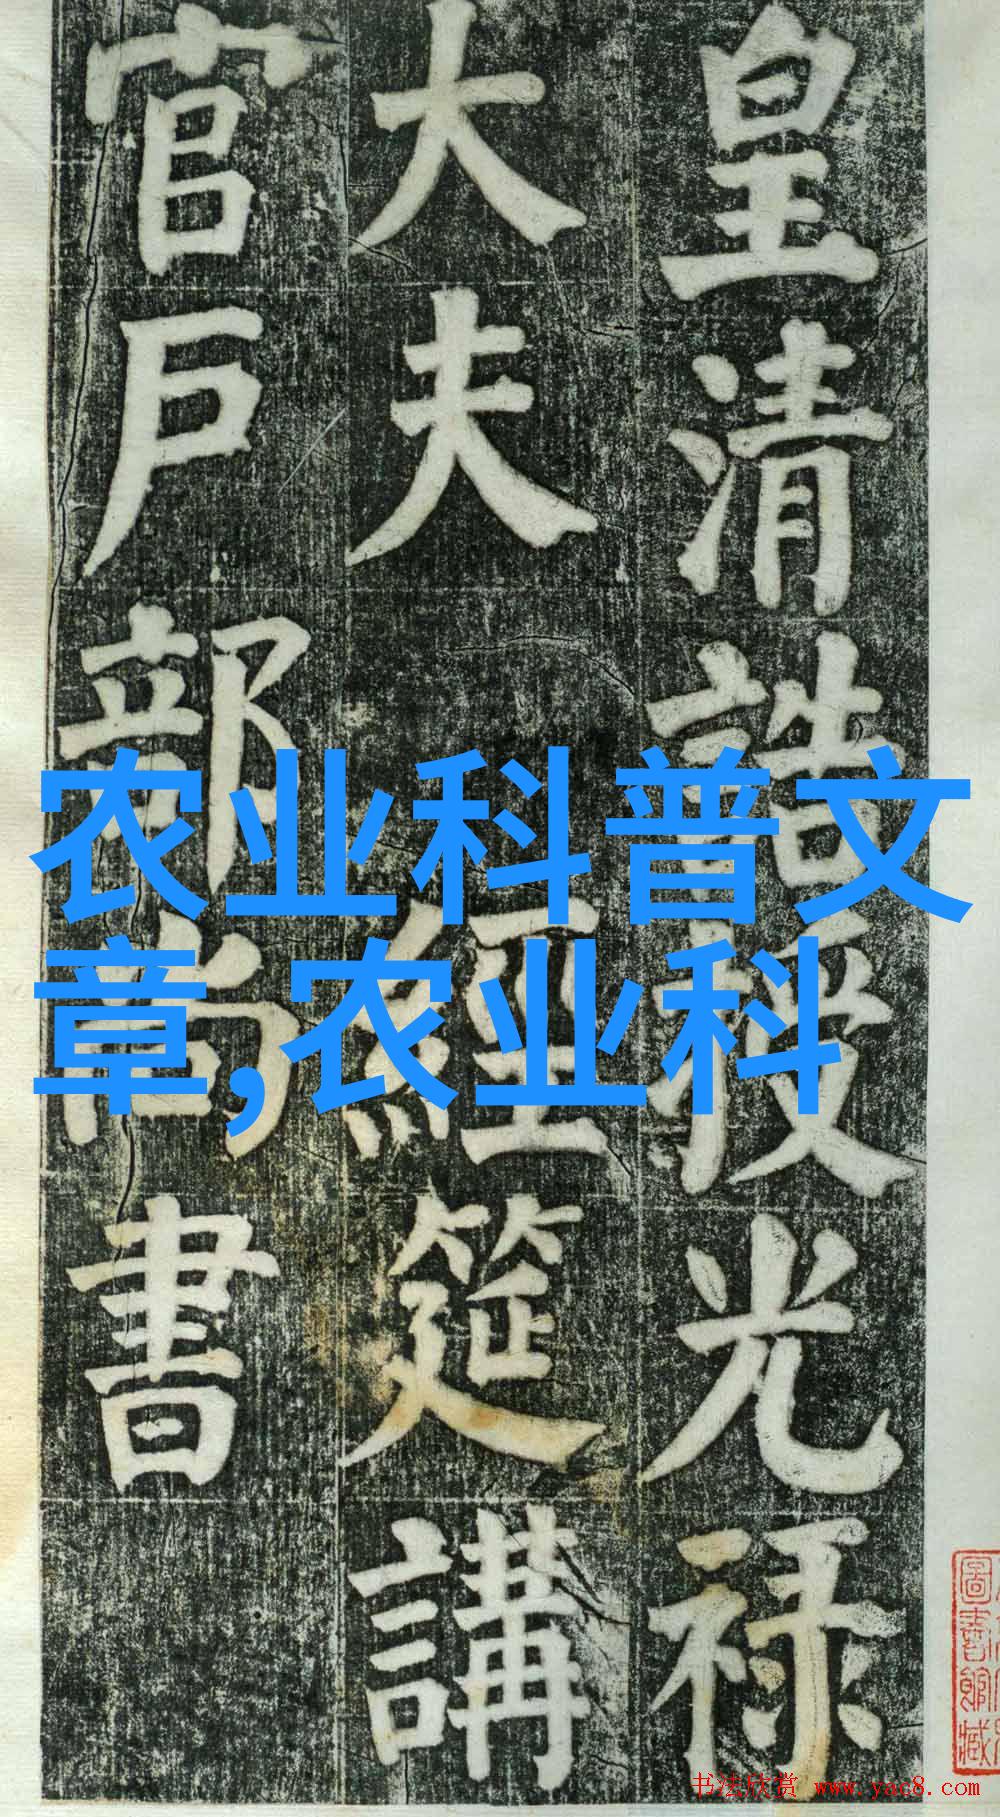 皇清誥授光禄
大夫 經筵講
官戶部尚書
农业科普文
章,农业科
圖書館藏
书法欣赏 www.yac8.com